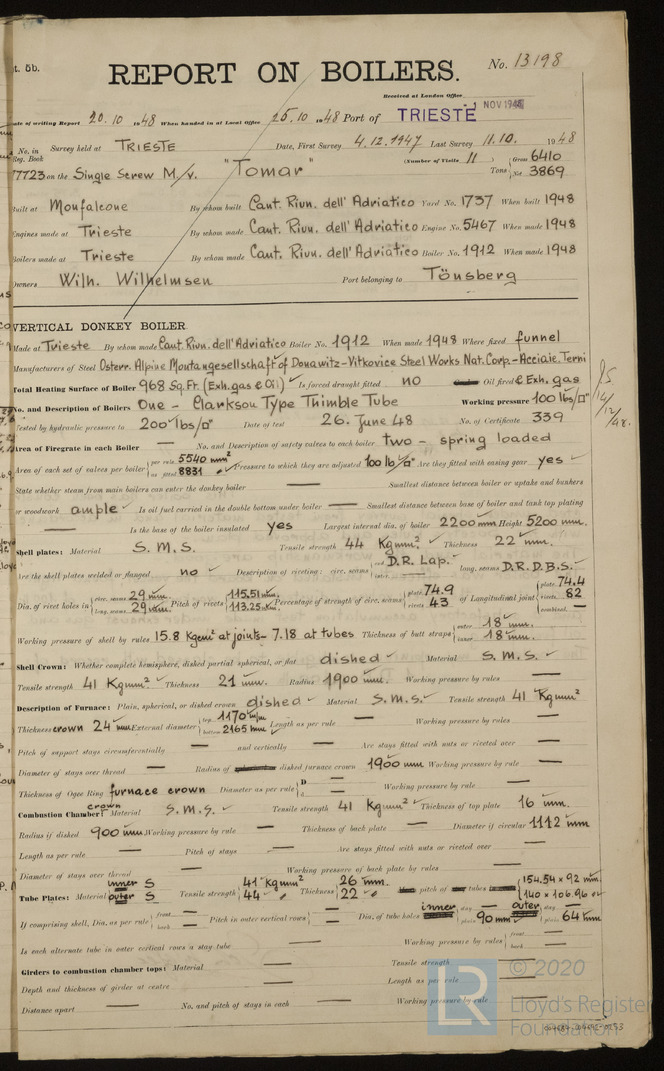 pt. 5b.
No. 13198
REPORT ON BOILERS.
Received at London Office
1 NOV 1948
Date of writing Report 20.10 1948 When handed in at Local Office 25.10 1948 Port of TRIESTE
No. in Reg. Book Survey held at TRIESTE Date, First Survey 4.12.1947 Last Survey 11.10. 1948
77723 on the Single Screw M/v. "Tomar" (Number of Visits 11) Tons Gross 6410 Net 3869
Built at Monfalcone By whom built Cant. Riun. dell' Adriatico Yard No. 1737 When built 1948
Engines made at Trieste By whom made Cant. Riun. dell' Adriatico Engine No. 5467 When made 1948
Boilers made at Trieste By whom made Cant. Riun. dell' Adriatico Boiler No. 1912 When made 1948
Owners Wilh. Wilhelmsen Port belonging to Tönsberg
VERTICAL DONKEY BOILER
Made at Trieste By whom made Cant. Riun. dell' Adriatico Boiler No. 1912 When made 1948 Where fixed funnel
Manufacturers of Steel Osterr. Alpine Montangesellschaft of Donawitz - Vitkovice Steel Works Nat. Corp. - Acciaie. Terni
Total Heating Surface of Boiler 968 Sq. Ft. (Exh. gas & Oil) Is forced draught fitted no Oil fired & Exh. gas
No. and Description of Boilers One - Clarkson Type Thimble Tube Working pressure 100 lbs/□"
Tested by hydraulic pressure to 200 lbs/□" Date of test 26. June 48 No. of Certificate 339
Area of Firegrate in each Boiler — No. and Description of safety valves to each boiler two - spring loaded
Area of each set of valves per boiler per rule 5540 mm² as fitted 8831 " Pressure to which they are adjusted 100 lb/□" Are they fitted with easing gear yes
State whether steam from main boilers can enter the donkey boiler — Smallest distance between boiler or uptake and bunkers
or woodwork ample Is oil fuel carried in the double bottom under boiler — Smallest distance between base of boiler and tank top plating
— Is the base of the boiler insulated yes Largest internal dia. of boiler 2200 mm Height 5200 mm.
Shell plates: Material S.M.S. Tensile strength 44 Kgmm² Thickness 22 mm.
Are the shell plates welded or flanged no Description of riveting: circ. seams end D.R. Lap. inter. — long. seams D.R.D.B.S.
Dia. of rivet holes in circ. seams 29 mm. long. seams 29 mm. Pitch of rivets 115.51 mm. 113.25 mm. Percentage of strength of circ. seams plate 74.9 rivets 43 of Longitudinal joint plate 74.4 rivets 82 combined —
Working pressure of shell by rules 15.8 Kgcm² at joints - 7.18 at tubes Thickness of butt straps outer 18 mm. inner 18 mm.
Shell Crown: Whether complete hemisphere, dished partial spherical, or flat dished Material S.M.S.
Tensile strength 41 Kgmm² Thickness 21 mm. Radius 1900 mm. Working pressure by rules —
Description of Furnace: Plain, spherical, or dished crown dished Material S.M.S. Tensile strength 41 Kgmm²
Thickness crown 24 mm External diameter top 1170 m/m bottom 2165 mm Length as per rule — Working pressure by rules —
Pitch of support stays circumferentially — and vertically — Are stays fitted with nuts or riveted over —
Diameter of stays over thread — Radius of dished furnace crown 1900 mm Working pressure by rule —
Thickness of Ogee Ring furnace crown Diameter as per rule D — d — Working pressure by rule —
Combustion Chamber: crown Material S.M.S. Tensile strength 41 Kgmm² Thickness of top plate 16 mm.
Radius if dished 900 mm Working pressure by rule — Thickness of back plate — Diameter if circular 1112 mm
Length as per rule — Pitch of stays — Are stays fitted with nuts or riveted over —
Diameter of stays over thread — Working pressure of back plate by rules —
Tube Plates: Material inner S outer S Tensile strength 41 Kgmm² 44 " Thickness 26 mm. 22 " pitch of tubes 154.54 × 92 mm. 140 × 106.96
If comprising shell, Dia. as per rule front — back — Pitch in outer vertical rows — Dia. of tube holes inner stay — plain 90 mm outer stay — plain 64 mm
Is each alternate tube in outer vertical rows a stay tube — Working pressure by rules front — back —
Girders to combustion chamber tops: Material — Tensile strength —
Depth and thickness of girder at centre — Length as per rule —
Distance apart — No. and pitch of stays in each — Working pressure by rule —
J.S
14/12/48.
LR
© 2020
Lloyd's Register
Foundation